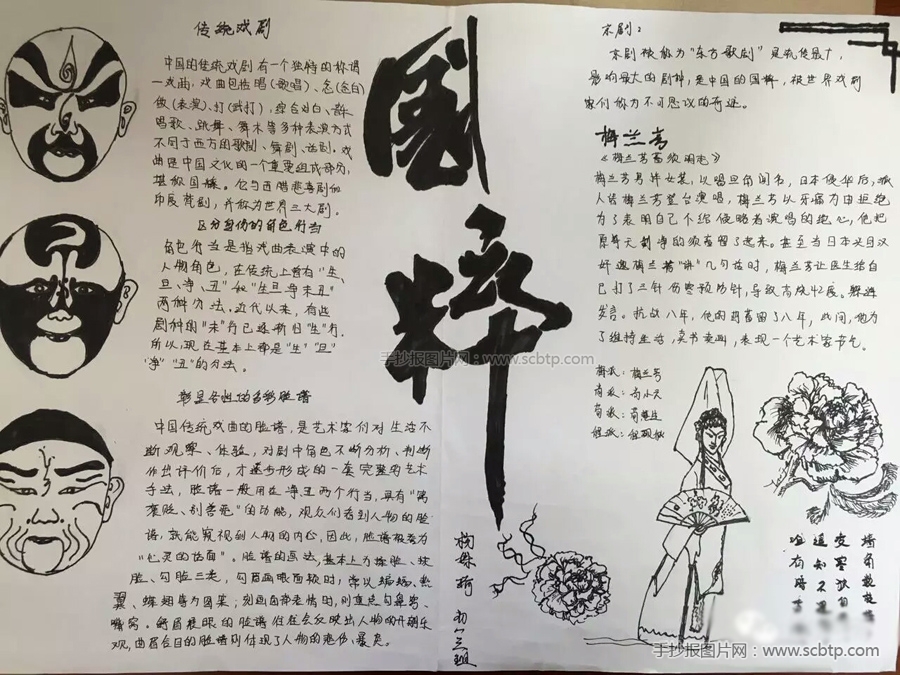 传统戏剧
中国的传统戏剧有一个独特的称谓
一戏曲,戏曲包括唱(歌唱)、念(念白)
做(表演)、打(武打),综合对白、
唱歌、跳舞、舞术等多种表演方式
不同于西方的歌剧、舞剧、话剧。戏
曲是中国文化的一个重要组成部分,
堪称国粹。它与西腊悲喜剧和
印度梵剧,并称为世界三大剧。
区分身份的角色行当
角色行当是指戏曲表演中的
人物角色,在传统上皆有"生、
旦、净、丑"和"生旦净末丑"
两种分法。近代以来,有些
剧种的"末"行已逐渐归"生"行,
所以,现在基本上都是"生""旦"
"净""丑"的分法。
脸谱
中国传统戏曲的脸谱,是艺术家们对生活不
断观察、体验,对剧中角色不断分析、判断
作出评价后,才逐步形成的一套完整的艺术
手法,脸谱一般用在净丑两个行当,具有"寓
褒贬、别善恶"的功能,观众们看到人物的脸
谱,就能窥视到人物的内心,因此,脸谱被誉为
"心灵的画面"。脸谱的画法,基本上为揉脸、抹
脸、勾脸三类,勾眉画眼面颊时,常以蝙蝠、燕
翼、蝶翅等为图案;刻画面部表情时,则重点勾鼻窝、
嘴窝。
的脸谱往往会反映出人物的开朗乐
观,曲眉合目的脸谱则体现了人物的悲伤、暴戾。
国粹
初一三班
京剧:
京剧被称为"东方歌剧"是我传最广,
影响最大的剧种,是中国的国粹,被世界戏剧
家们称为不可思议的奇迹。
梅兰芳
《梅兰芳蓄须明志》
梅兰芳男伴女装,以唱旦角闻名,日本侵华后,
人请梅兰芳登台演唱,梅兰芳以牙痛为由拒绝
为了表明自己不给侵略者演唱的决心,他把
原每天剃净的须蓄留了起来。甚至当日本人汉
奸邀梅兰芳"讲"几句话时,梅兰芳让医生给自
己打了三针伤寒预防针,导致高烧42度。
发言。抗战八年,他的胡蓄留了八年,此间,他为
了维持生活,卖书卖画,表现一个艺术家节气。
梅派:梅兰芳
尚派:尚小云
荀派:荀慧生
程派:程砚秋
墙角数枝梅
凌寒独自
遥知不
唯有暗
手抄报图片网:www.scbtp.com
手抄报图片网:www.scbtp.com